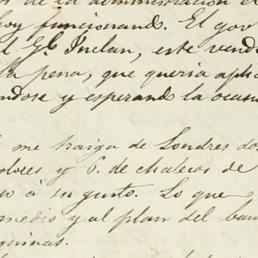 de la administracion
oy funcionando. El gov
l Gl Inclan, este vend
la pena, que queria aplic
ndose y esperando la ocas
me traiga de Londres dos
olores y 6. de chalecos de
o á su gusto. Lo que
medio y al plan del ban
quinas.